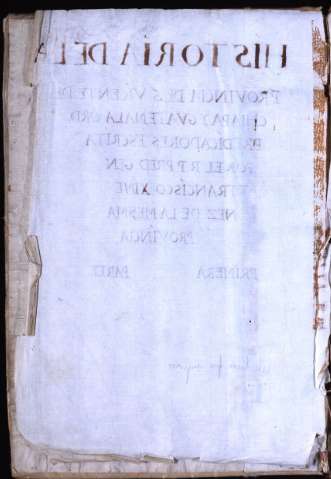 HISTORIA DE LA
PROVINCIA DE S VICENTE DE
CHIAPA Y GVATEMALA ORD
PREDICADORES ESCRITA
POR EL R P PRED GEN
F FRANCISCO XIME
NEZ DE LA MESMA
PROVINCIA
PRIMERA PART